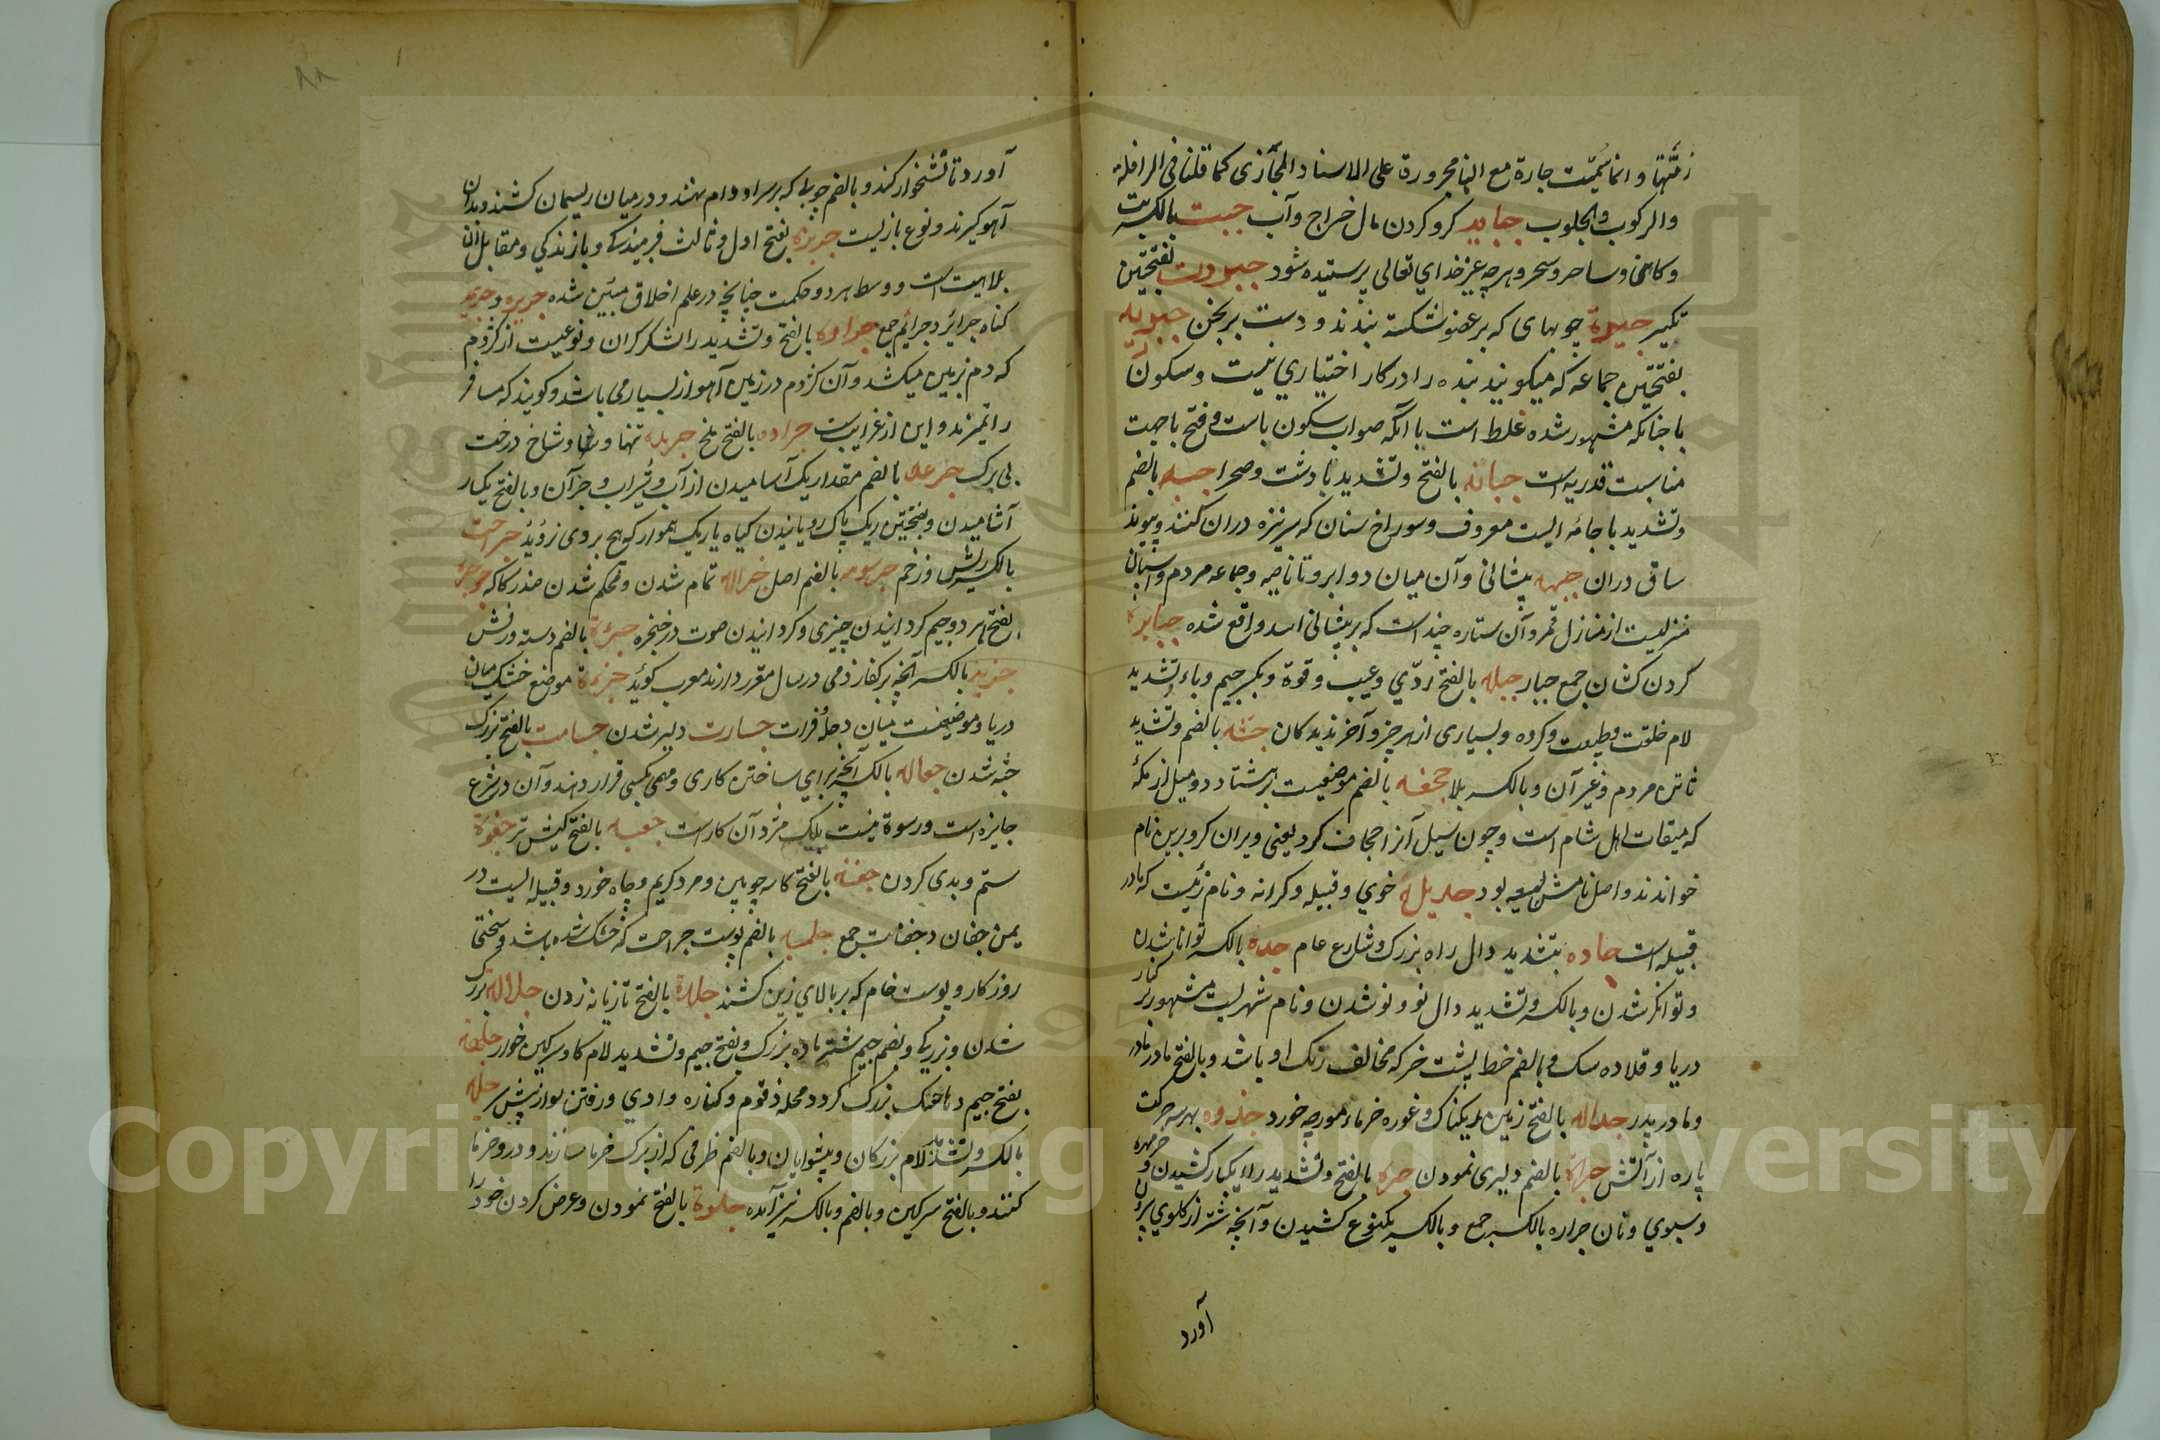 زمتها و انما سمیت جارة مع انها مجرورة علی الاسناد المجازی کما قلنا فی الرافلة
والرکوب والجلوب جبایه کرد کردن مال خراج و آب جبت بالکسر بت
و کاهن و ساحر و سحر و هر چه غیر خدای تعالی پرستیده شود جبروت بفتحتین
تکبر جبیرة چوبهای که بر عضو شکسته بندند و دست برنجن جبریه
بفتحتین جماعه که میکویند بنده را در کار اختیاری نیست و سکون
با چنانکه مشهور شده غلط است یا آنکه صواب سکون باست و فتح با جهت
مناسبت قدریه است جبانه بالفتح و تشدید با دشت و صحرا جبه بالضم
و تشدید با جامه ایست معروف و سوراخ سنان که سر نیزه دران کنند و پیوند
ساق دران جبهه پیشانی و آن میان دو ابرو تا ناصیه و جماعه مردم و اسپان
منزلیست از منازل قمر و آن ستاره چند است که بر پیشانی اسد واقع شده جبابرة
کردن کشان جمع جبار جبله بالفتح ردّی و عیب و قوة و بکسر جیم و باء و تشدید
لام خلقت و طبیعت و کرده و بسیاری از هر چیز و آفرندیدکان جثه بالضم و تشدید
ثا تن مردم و غیر آن و بالکسر بلا جحفه بالضم موضعیست بر هشتاد دو میل از مکه
که میقات اهل شام است و چون سیل آنرا اجحاف کرد یعنی ویران کرد برین نام
خواندند و اصل نامش مهیعه بود جدیلة خوی و قبیله و کرانه و نام زنیست که مادر
قبیله است جاده بتشدید دال راه بزرک و شارع عام جده بالکسر توانا شدن
و توانکر شدن و بالکسر و تشدید دال نو و نو شدن و نام شهریست مشهور بر کنار
دریا و قلاده سک و بالضم خط پشت خر که مخالف رنک او باشد و بالفتح مادر مادر
و مادر پدر جداله بالفتح زمین ریکناک و غوره خرما و مورچه خورد جذوه بهر سه حرکت
پاره از آتش جراة بالضم دلیری نمودن جره بالفتح و تشدید را یکبار کشیدن و خرمهره
و سبوی و نان جراره بالکسر جمع و بالکسر یکنوع کشیدن و آنچه شتر از کلوی برون
آورد
۸۸
آورد تا نشخوار کند و بالضم چوبی که بر سر او دام نهند و در میان ریسمان کشند و بدان
آهو کیرند و نوع بازیست جربزه بفتح اول و ثالث فریبندکی و بازندکی و مقابل آن
بلاهت است و وسط هر دو حکمت چنانچه در علم اخلاق مبیّن شده جریره و جریمه
کناه جرائر و جرائم جمع جراره بالفتح و تشدید را لشکر کران و نوعیست از کژدم
که دم بزمین میکشد و آن کژدم در زمین اهواز بسیار می باشد و کویند که مسافر
را نمیزند و این از غرایبست جراده بالفتح ملخ جریده تنها و شاخ درخت
بی برک جرعه بالضم مقدار یک آشامیدن از آب و شراب و جز آن و بالفتح یکبار
آشامیدن و بفتحتین ریک پاک رویانیدن کیاه یا ریک هموار که هیچ بر وی نروید جراحت
بالکسر ریش و زخم جرثومه بالضم اصل جزاله تمام شدن و محکم شدن ضد رکاکه جرجرة
بفتح هر دو جیم کردانیدن چیزی و کردانیدن صوت در حنجره جزءة بالضم دسته درفش
جزیه بالکسر آنچه بر کفار ذمی در سال مقرر دارند معرب کزید جزیرة موضع خشک میان
دریا و موضعیست میان دجله و فرات جسارت دلیر شدن جسامت بالفتح بزرک
جثه شدن جعاله بالکسر آنچه برای ساختن کاری و مهمی بکسی قرار دهند و آن در شرع
جایزه است و رسوة نیست بلکه مزد آن کار است جعبه بالفتح کیش تیر جفوة
ستم و بدی کردن جفنه بالفتح کاسه چوبین و مرد کریم و چاه خورد و قبیله ایست در
یمن جفان و جفنات جمع جلبه بالضم پوست جراحت که خشک شده باشد و سختی
روزکار و پوست خام که بر بالای زین کشند جلدة بالفتح تازیانه زدن جلاله بزرک
شدن و بزرکی و بضم جیم شتر ماده بزرک و بفتح جیم و تشدید لام کاو سرکین خوار جلهه
بفتح جیم و ها خنک بزرک کرد و محله و قوم و کناره وادی و رفتن مو از پیش سر جله
بالکسر و تشدید لام بزرکان و پیشوایان و بالضم ظرفی که از برک خرما سازند و درو خرما
کنند و بالفتح سرکین و بالضم و بالکسر نیز آمده جلوة بالفتح نمودن و عرض کردن خود را
Copyright © King Saud University